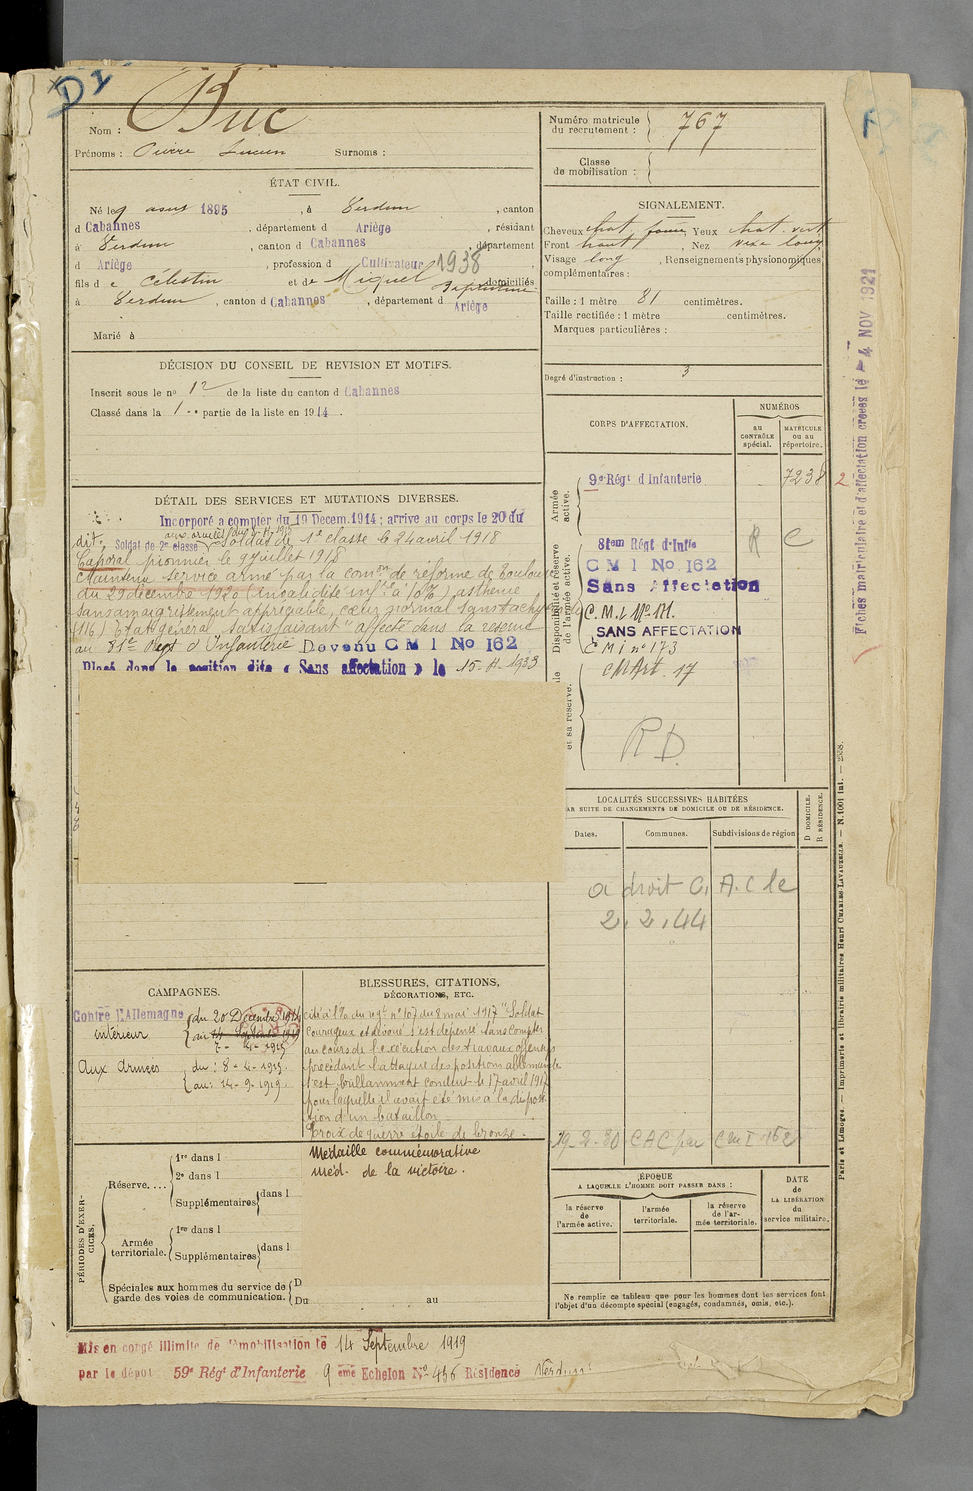 D2
Nom : Duc
Prénoms : Pierre Lucien Surnoms :
ÉTAT CIVIL.
Né le 9 aout 1895, à Verdun, canton
d Cabannes, département d Ariège, résidant
à Verdun, canton d Cabannes, département
d Ariège, profession d Cultivateur 1938
fils d e Célestin et de Miquel domiciliés
à Verdun, canton d Cabannes, département d Ariège
Marié à
DÉCISION DU CONSEIL DE REVISION ET MOTIFS.
Inscrit sous le no 12 de la liste du canton d Cabannes
Classé dans la 1.. partie de la liste en 1914.
DÉTAIL DES SERVICES ET MUTATIONS DIVERSES.
Incorporé a compter du 19 Decem. 1914 ; arrive au corps le 20 du
dit, Soldat de 2e classe Soldat de 1e classe le 24 avril 1918
Caporal pionnier le 9 juillet 1918
Maintenu service armé par la comon de réforme de Toulouse
du 29 décembre 1920 (invalidité infre à 10%) asthenie
sans amaigrissement appréciable, cœur normal sans tachy
(116) Etat général satisfaisant" affecté dans la réserve
au 81e Regt d'Infanterie Devenu C M I No 162
Placé dans la position dite « Sans affectation » le 15-11-1933
CAMPAGNES.
Contre l'Allemagne du 20 Décembre 1914
intérieur au 14 Septembre 1919
7 - 4 - 1915
Aux Armées du : 8 - 4 - 1915.
au : 14 - 9 - 1919.
BLESSURES, CITATIONS,
DÉCORATIONS, ETC.
cité à l'o/ du regt no 107 du 8 mai 1917 "Soldat
courageux et dévoué s'est dépensé sans compter
au cours de l'exécution des travaux offensifs
précédant l'attaque des positions allemandes
s'est brillamment conduit le 17 avril 1917
pour laquelle il avait été mis à la disposi
tion d'un bataillon
Croix de guerre étoile de bronze.
Médaille commémorative
med. de la victoire.
PÉRIODES D'EXERCICES.
Réserve....
1re dans l
2e dans l
Supplémentaires dans l
Armée territoriale.
1re dans l
Supplémentaires dans l
Spéciales aux hommes du service de garde des voies de communication.
D
Du au
Mis en congé illimité de démobilisation le 14 Septembre 1919
par le dépot 59e Régt d'Infanterie 9 eme Echelon No 456 Résidence Verdun
Numéro matricule du recrutement : 767
Classe de mobilisation :
SIGNALEMENT.
Cheveux chat foncé, Yeux chat. vert
Front haut, Nez long
Visage long, Renseignements physionomiques
complémentaires :
Taille : 1 mètre 81 centimètres.
Taille rectifiée : 1 mètre centimètres.
Marques particulières :
Degré d'instruction : 3
CORPS D'AFFECTATION.
NUMÉROS
au CONTRÔLE spécial.
MATRICULE ou au répertoire.
Armée active.
9e Régt d Infanterie 7238 2
Disponibilité et réserve de l'armée active.
81em Régt d'Infie R C
C M I No. 162
Sans Affectation
C.M.I. No 171.
SANS AFFECTATION
C M I no 173
et sa réserve.
CM Art. 17
R D
LOCALITÉS SUCCESSIVES HABITÉES
PAR SUITE DE CHANGEMENTS DE DOMICILE OU DE RÉSIDENCE.
Dates. Communes. Subdivisions de région
D DOMICILE.
R RÉSIDENCE.
a droit C. A. C le
2. 2. 44
19-2-30 CAC par C M I 162
ÉPOQUE
A LAQUELLE L'HOMME DOIT PASSER DANS :
la réserve de l'armée active.
l'armée territoriale.
la réserve de l'armée territoriale.
DATE de LA LIBÉRATION du service militaire.
Ne remplir ce tableau que pour les hommes dont les services font
l'objet d'un décompte spécial (engagés, condamnés, omis, etc.).
Fiches matriculaire et d'affectation créées le -4 NOV 1921
Paris et Limoges. — Imprimerie et librairie militaires Henri CHARLES-LAVAUZELLE. — N. 1001 int.